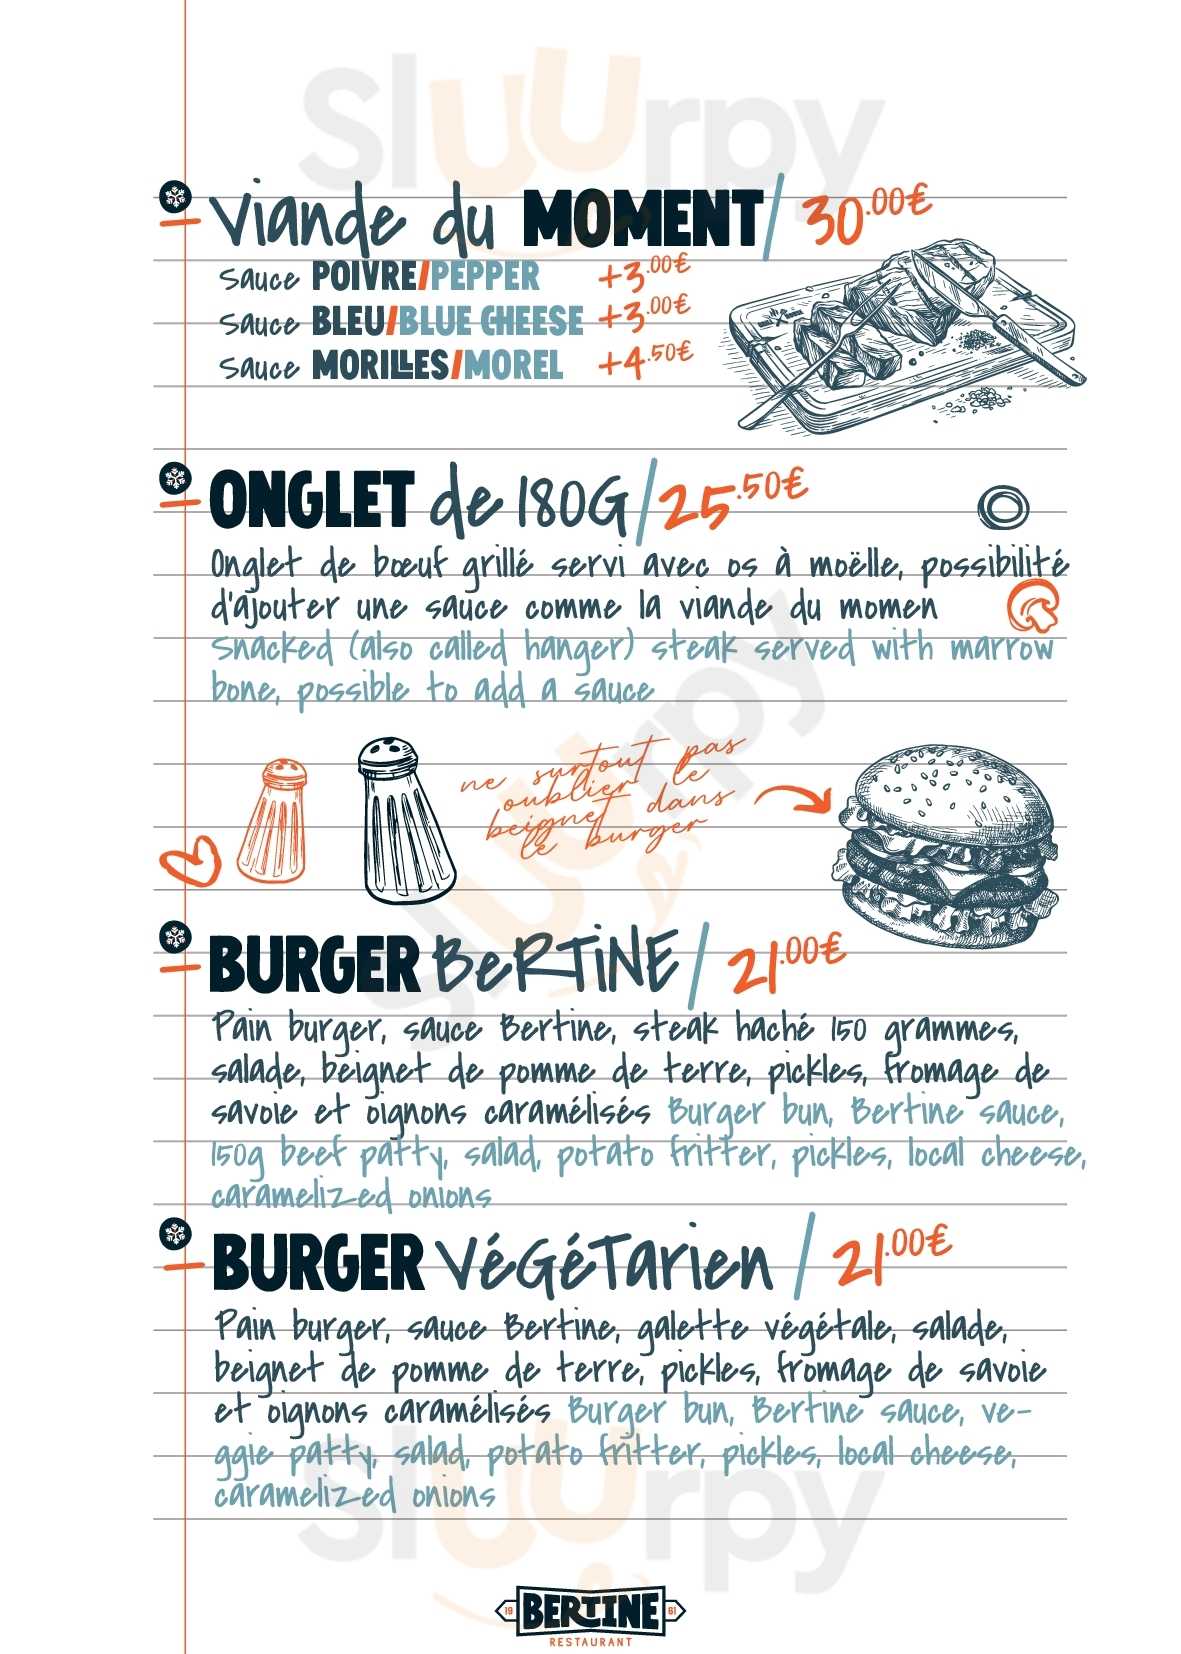 Sluurpy
Viande du MOMENT/ 30.00€
Sauce POIVRE/PEPPER +3.00€
Sauce BLEU/BLUE CHEESE +3.00€
Sauce MORILLES/MOREL +4.50€
ONGLET de 180G/25.50€
Onglet de bœuf grillé servi avec os à moëlle, possibilité
d'ajouter une sauce comme la viande du momen
Snacked (also called hanger) steak served with marrow
bone, possible to add a sauce
Sluurpy
ne surtout pas
oublier le
beignet dans
le burger
BURGER BeRTiNE/ 21.00€
Pain burger, sauce Bertine, steak haché 150 grammes,
salade, beignet de pomme de terre, pickles, fromage de
savoie et oignons caramélisés Burger bun, Bertine sauce,
150g beef patty, salad, potato fritter, pickles, local cheese,
caramelized onions
BURGER VéGéTarien / 21.00€
Pain burger, sauce Bertine, galette végétale, salade,
beignet de pomme de terre, pickles, fromage de savoie
et oignons caramélisés Burger bun, Bertine sauce, ve-
ggie patty, salad, potato fritter, pickles, local cheese,
caramelized onions
Sluurpy
19 BERTINE 61
RESTAURANT